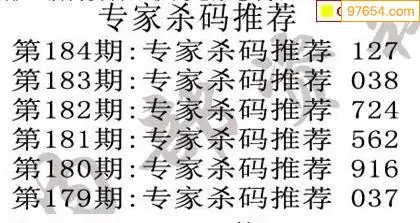 97654.com
专家杀码推荐
第184期:专家杀码推荐 127
第183期:专家杀码推荐 038
第182期:专家杀码推荐 724
第181期:专家杀码推荐 562
第180期:专家杀码推荐 916
第179期:专家杀码推荐 037